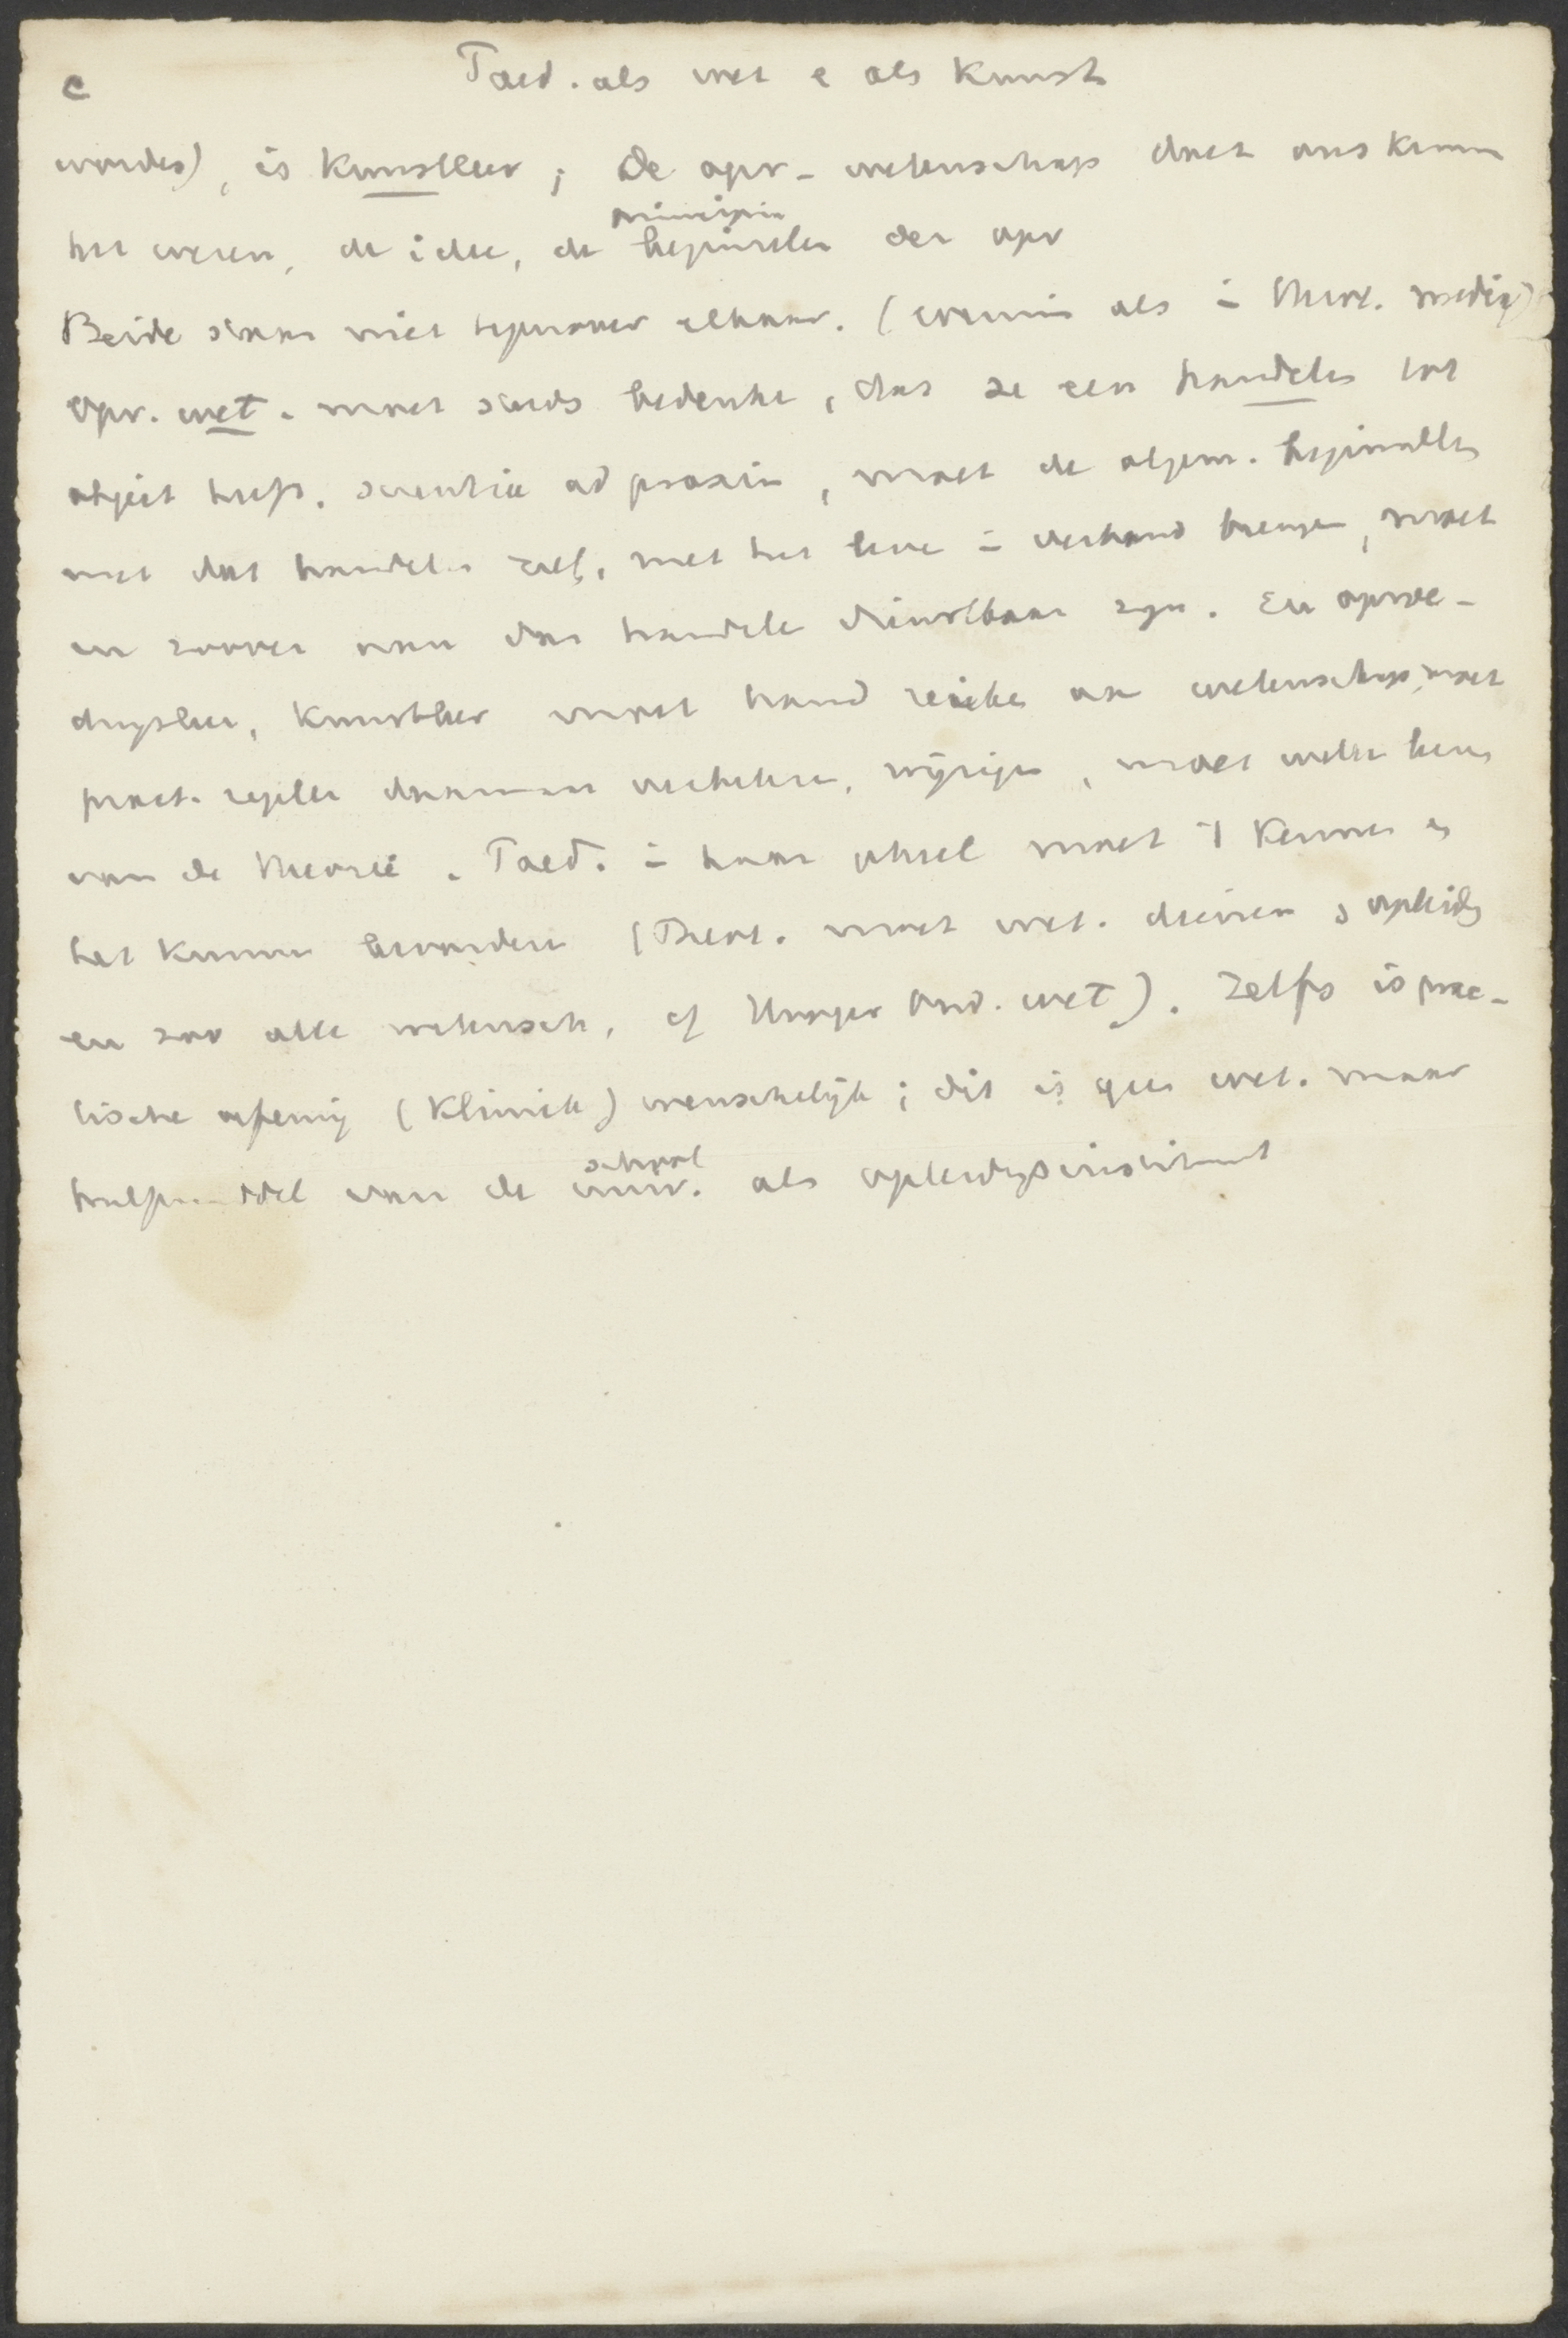 c
Paed. als wet e als Kunst
worden), is Kunstleer; de opv-wetenschap doet ons kennen
principia
het wezen, de idee, de beginselen der opv
Beide staan niet tegenover elkaar. (evenmin als in theol. medic)
Opv. wet. moet steeds bedenken, dat ze een handelen tot
object heeft, scientia ad praxin, moet de algem. beginselen
met dat handelen zelf, met het leven in verband brengen, moet
in zoover aan dat handelen dienstbaar zyn. En opvoe-
dingsleer, Kunstleer moet hand reiken aan wetenschap, moet
pract. regelen daarnaar verbeteren, wijzigen, moet
van de theorie. Paed. in haar geheel moet 't Kennen en
het Kunnen bevorderen (Theol. moet wet. dienen & opleidg
en zoo alle wetensch, cf Unger Ond. wet). Zelfs is prac-
tische oefening (Kliniek) wenschelijk; dit is geen wet. maar
school
hulpmiddel van de univ. als opleidingsinstituut